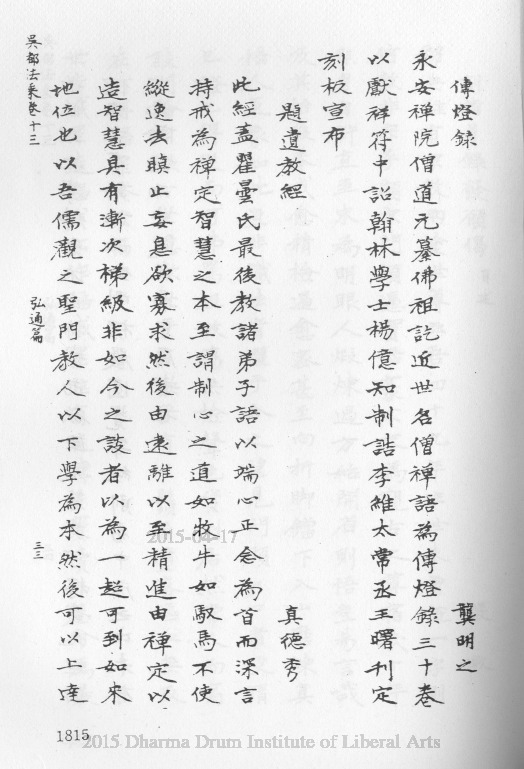 傳燈錄
龔明之
永安禪院僧道元纂佛祖訖近世名僧禪語為傳燈錄三十卷
以獻祥符中詔翰林學士楊億知制誥李維太常丞王曙刊定
刻板宣布
題遺教經
真德秀
此經蓋瞿曇氏最後教諸弟子語以端心正念為首而深言
持戒為禪定智慧之本至謂制心之道如牧牛如馭馬不使
縱逸去瞋止妄息欲寡求然後由遠離以至精進由禪定以
造智慧具有漸次梯級非如今之談者以為一超可到如來
地位也以吾儒觀之聖門教人以下學為本然後可以上達
吳都法乘卷十三
弘通篇
三三
1815
2015-04-17
2015 Dharma Drum Institute of Liberal Arts